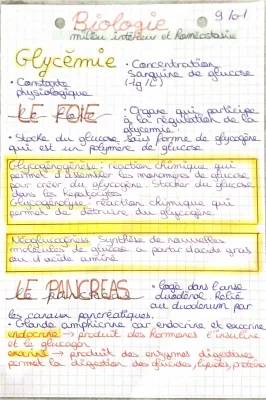 Biologie
9/01
milieu intérieur et homéostasie
Glycémie
• Concentration
sanguine de glucose
(~1g/L)
• Constante
physiologique
LE FOIE
• Organe qui participe
à la régulation de la
glycémie.
• Stocke du glucose sous forme de glycogène
qui est un polymère de glucose
Glycogénogénèse: réaction chimique qui
permet d'assembler les monomères de glucose
pour créer du glycogène. Stocker du glucose
dans les hépatocytes
Glycogénolyse: réaction chimique qui
permet de détruire du glycogène.
Néoglucogénèse: Synthèse de nouvelles
molécules de glucose à partir d'acide gras
ou d'acide aminé
LE PANCREAS
• logé dans l'anse
duodénal. Relié
au duodénum par
les canaux pancréatiques.
• Glande amphicrine car endocrine et exocrine
endocrine → produit des hormones l'insuline
et le glucagon
exocrine → produit des enzymes digestives
permet la digestion des glucides, lipides, protéines